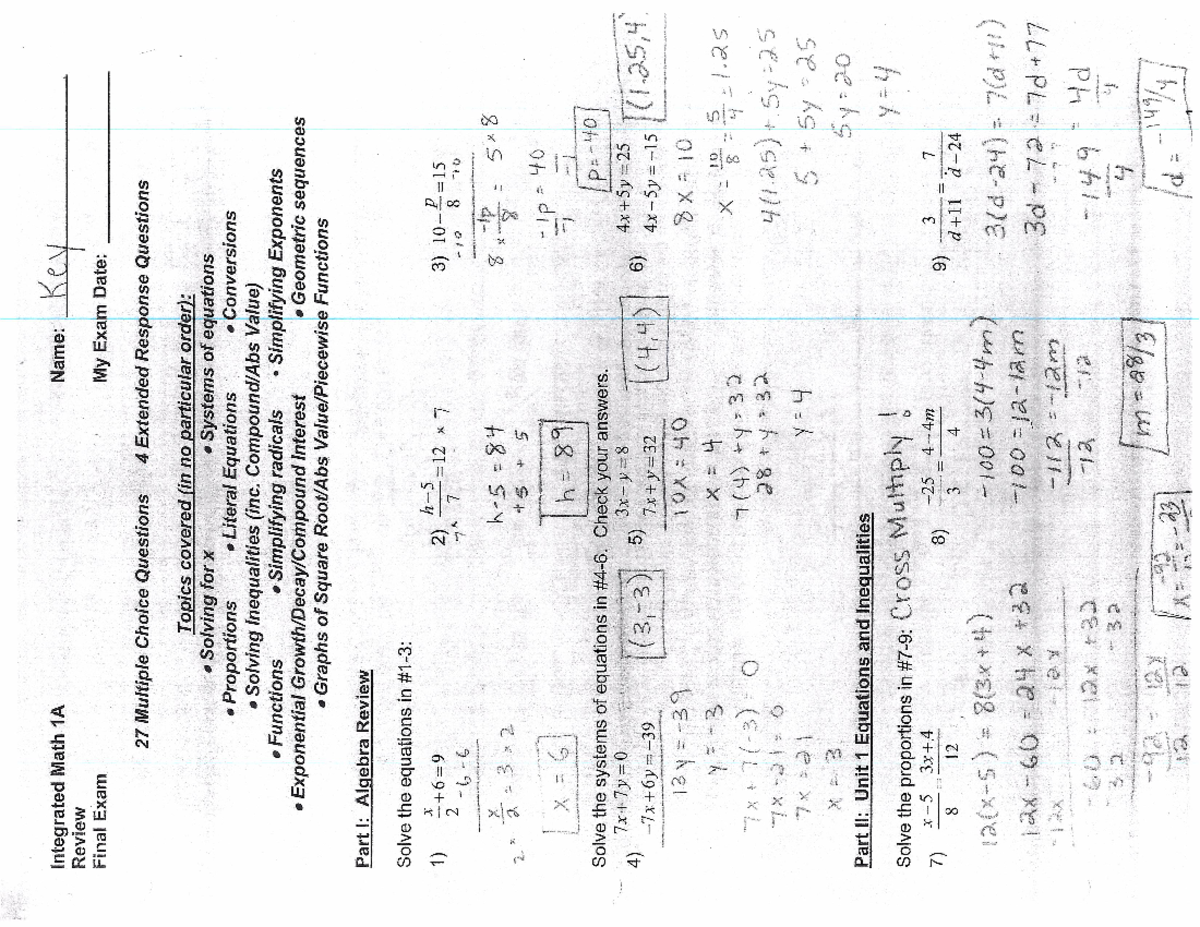 Integrated Math 1A
Name: Key
Review
Final Exam
My Exam Date:
27 Multiple Choice Questions 4 Extended Response Questions
Topics covered (in no particular order):
• Solving for x • Systems of equations
• Proportions • Literal Equations • Conversions
• Solving Inequalities (inc. Compound/Abs Value)
• Functions • Simplifying radicals • Simplifying Exponents
• Exponential Growth/Decay/Compound Interest • Geometric sequences
• Graphs of Square Root/Abs Value/Piecewise Functions
Part I: Algebra Review
Solve the equations in #1-3:
1) x/2 + 6 = 9
-6 -6
2 × x/2 = 3 × 2
x = 6
2) 7 × h-5/7 = 12 × 7
h-5 = 84
+5 +5
h = 89
3) 10 - p/8 = 15
-10 -10
8 × -1p/8 = 5 × 8
-1p = 40
-1 -1
p = -40
Solve the systems of equations in #4-6. Check your answers.
4) 7x + 7y = 0
-7x + 6y = -39
(3, -3)
13y = -39
y = -3
7x + 7(-3) = 0
7x - 21 = 0
7x = 21
x = 3
5) 3x - y = 8
7x + y = 32
(4,4)
10x = 40
x = 4
7(4) + y = 32
28 + y = 32
y = 4
6) 4x + 5y = 25
4x - 5y = -15
(1.25, 4
8x = 10
x = 10/8 = 5/4 = 1.25
4(1.25) + 5y = 25
5 + 5y = 25
5y = 20
y = 4
Part II: Unit 1 Equations and Inequalities
Solve the proportions in #7-9: Cross Multiply!
7) x-5/8 = 3x+4/12
12(x-5) = 8(3x+4)
12x - 60 = 24x + 32
-12x -12x
-60 = 12x + 32
-32 -32
-92 = 12x
12 12
x = -92
8) -25/3 = 4-4m/4
-100 = 3(4-4m)
-100 = 12 - 12m
-112 = -12m
-12 -12
m = 28/3
9) 3/d+11 = 7/d-24
3(d-24) = 7(d+11)
3d - 72 = 7d + 77
-149 = 4d
4 4
d = -149/4